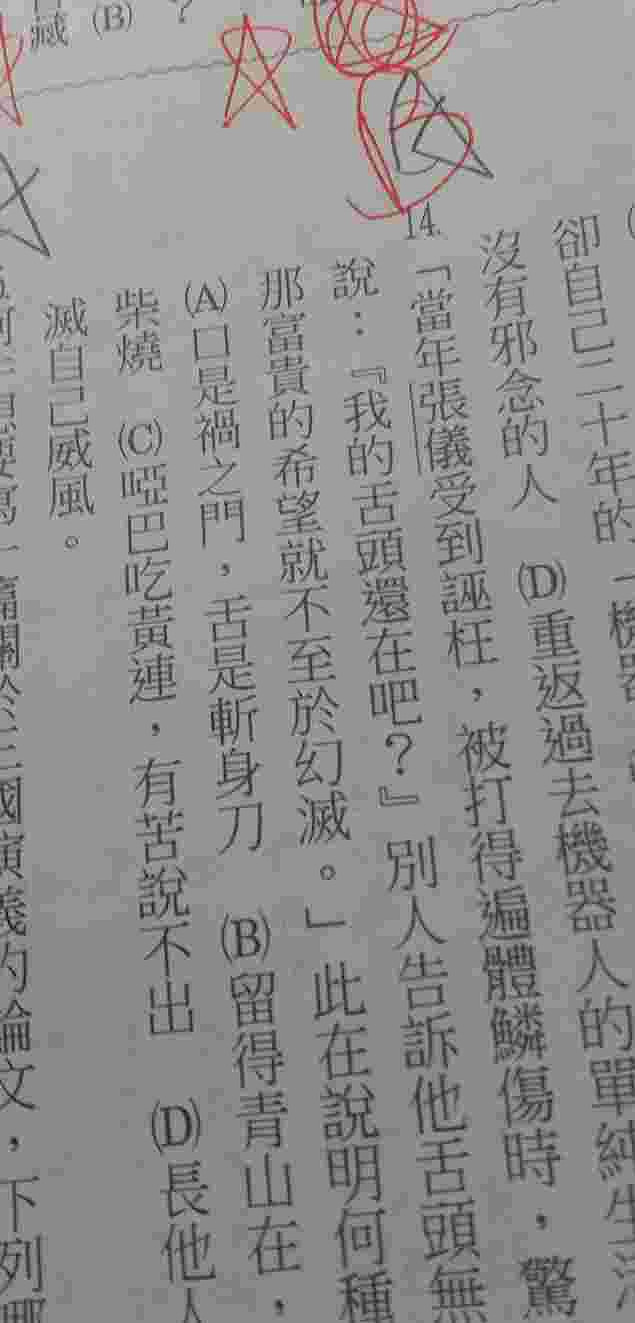 卻自己二十年的「機器
沒有邪念的人 (D)重返過去機器人的單純生活
14.「當年張儀受到誣枉，被打得遍體鱗傷時，驚
說：『我的舌頭還在吧？』別人告訴他舌頭無
那富貴的希望就不至於幻滅。」此在說明何種
(A)口是禍之門，舌是斬身刀 (B)留得青山在，
柴燒 (C)啞巴吃黃連，有苦說不出 (D)長他人
滅自己威風。
一篇關於三國演義的論文，下列哪
藏 (B) ？